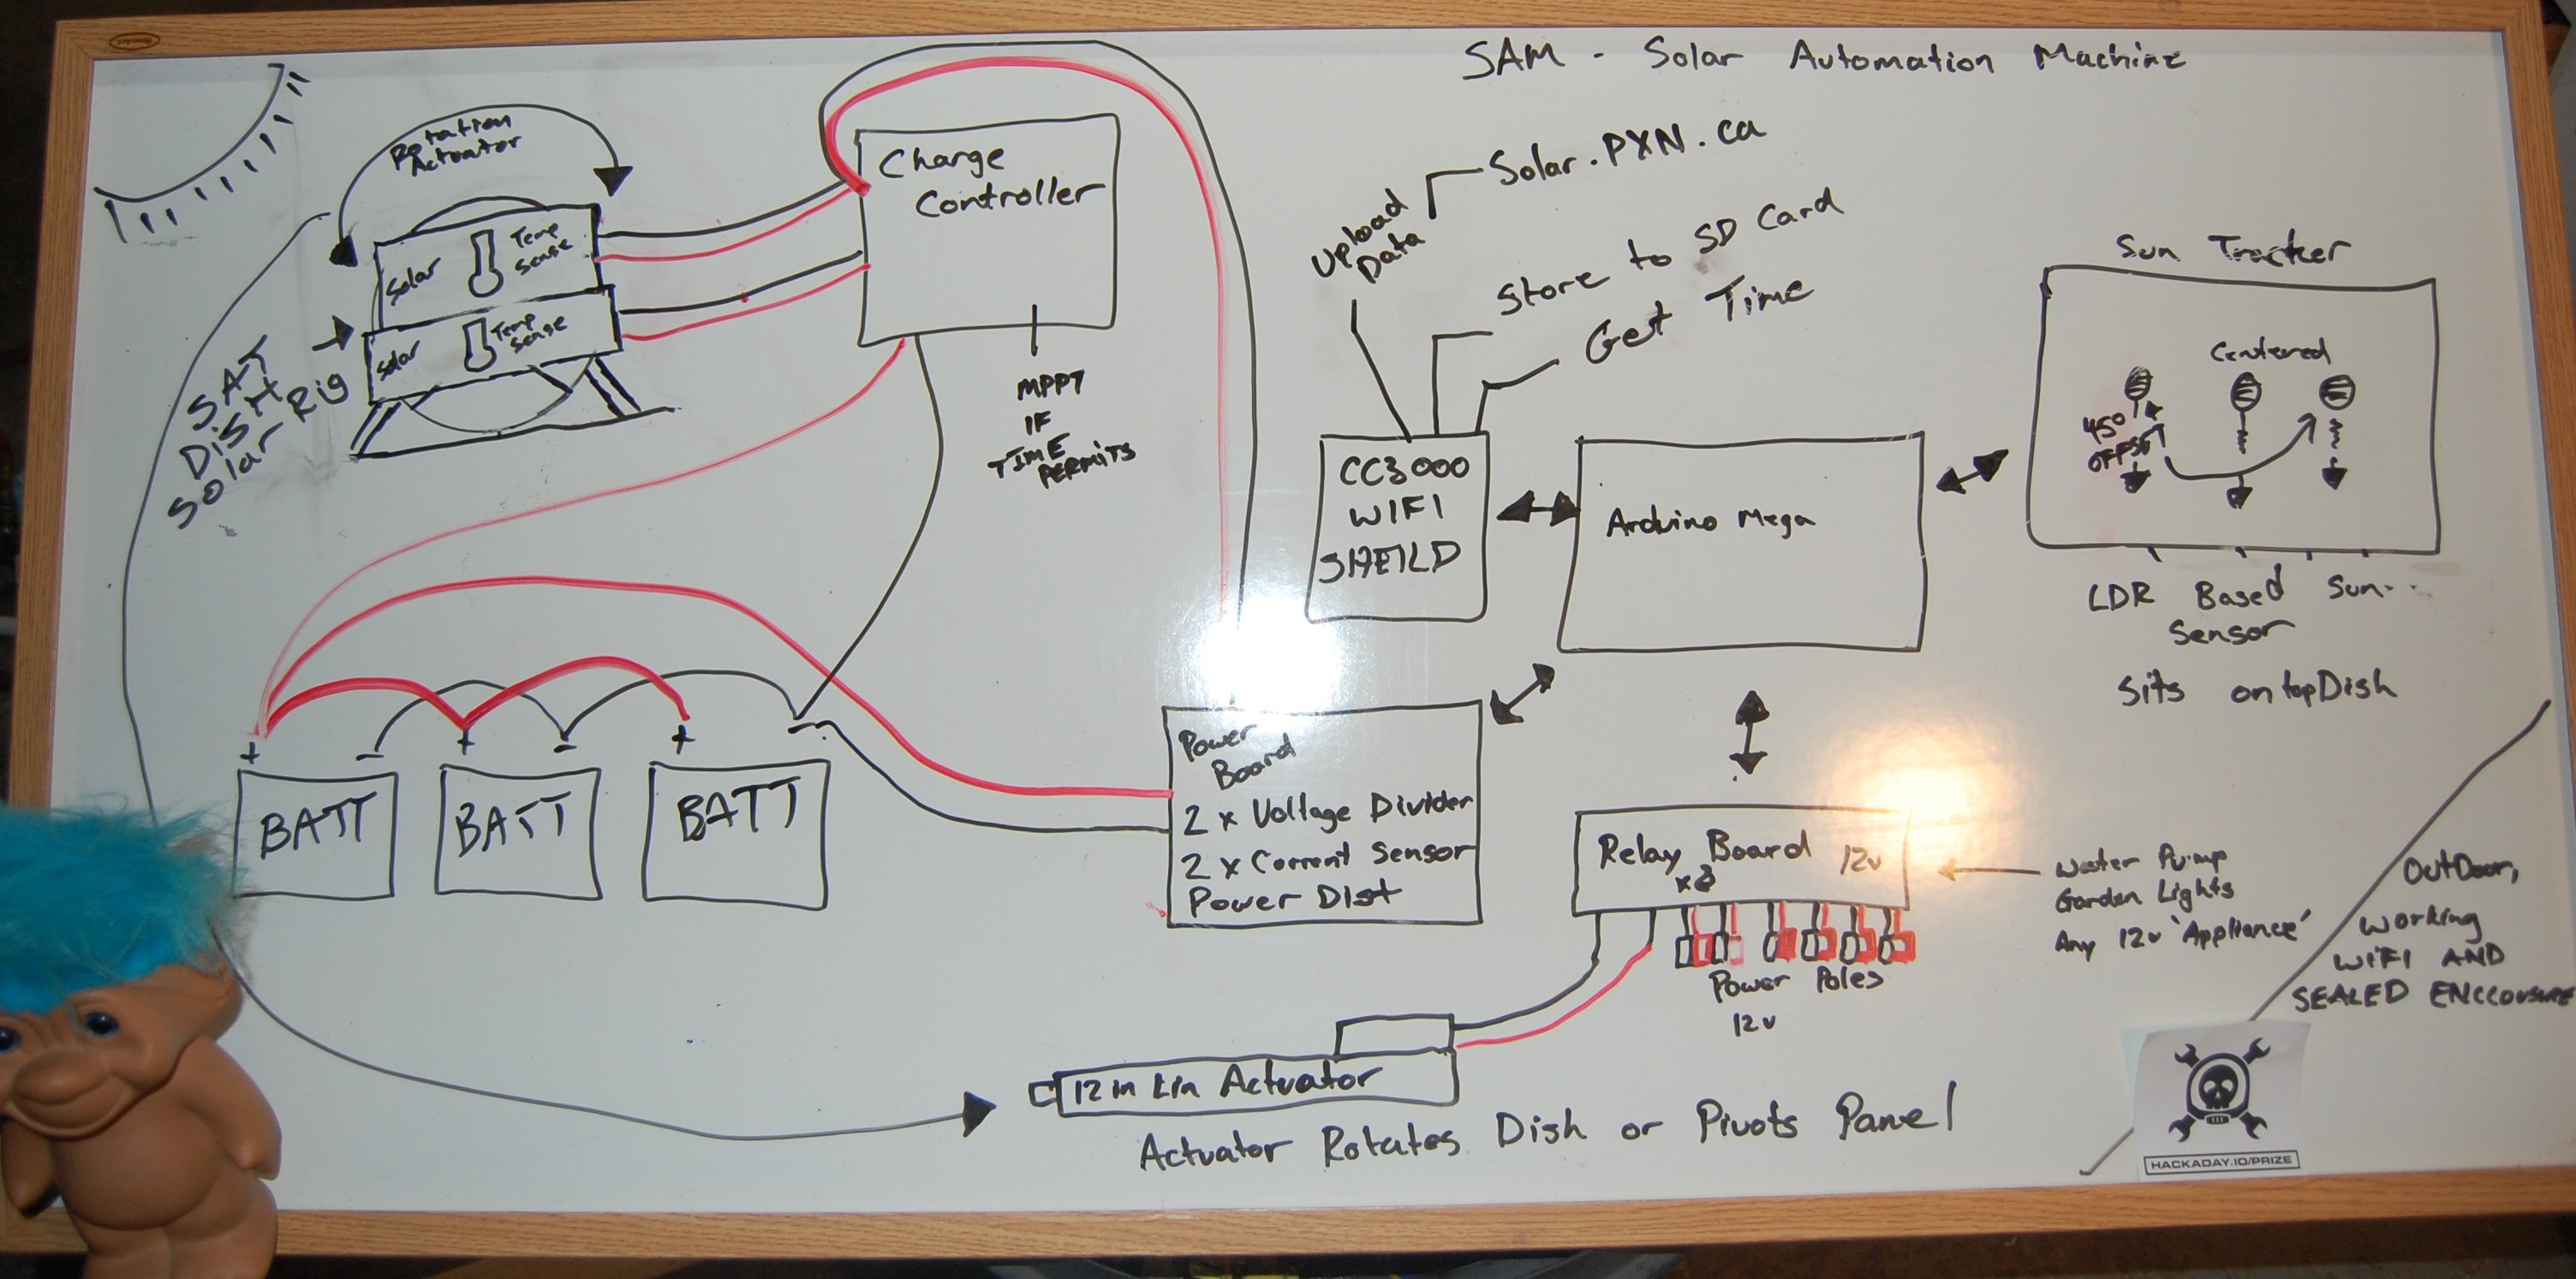 SAM - Solar Automation Machine
Rotation
Actuator
Solar
Temp
Sense
Solar
Temp
Sense
SAT
DISH
Solar Rig
Charge
Controller
MPPT
IF
TIME
PERMITS
Upload
Data
Solar.PXN.ca
Store to SD Card
Get Time
CC3000
WIFI
SHEILD
Arduino Mega
Sun Tracker
Centered
450
OFFSET
LDR Based Sun
Sensor
Sits on top Dish
+ - + - + -
BATT
BATT
BATT
Power
Board
2 x Voltage Divider
2 x Current Sensor
Power Dist
Relay Board 12v
Water Pump
Garden Lights
Any 12v 'Appliance'
Power Poles
12v
12 in Lin Actuator
Actuator Rotates Dish or Pivots Panel
OutDoor,
Working
WIFI AND
SEALED ENCLOUSURE
HACKADAY.IO/PRIZE